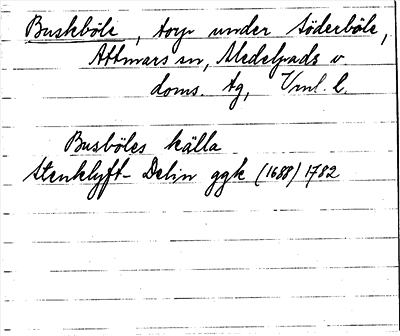 Buskböle, torp under Söderböle,
Attmars sn, Medelpads v
doms. tg, Vml. l.
Busböles källa
Stenklyft- Delin ggk (1688) 1782